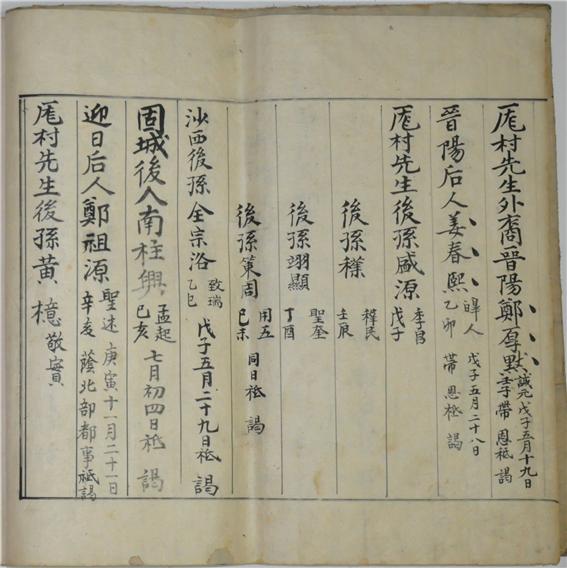 厖村先生外裔晉陽鄭厚默 誠元 戊子五月十九日 季帶 恩祗 謁
晉陽后人姜春熙 皡人 乙卯 戊子五月二十八日 帶 恩祗 謁
厖村先生後孫盛源 季昌 戊子
後孫穫 稺民 壬辰
後孫翊顯 聖奎 丁酉
後孫策周 用五 己未 同日祗 謁
沙西後孫全宗洛 致瑞 乙巳 戊子五月二十九日祗 謁
固城後人南柱興 孟起 己亥 七月初四日祗 謁
迎日后人鄭祖源 聖述 辛亥 庚寅十一月二十一日 蔭北部都事祗謁
厖村先生後孫黃檍 敬實